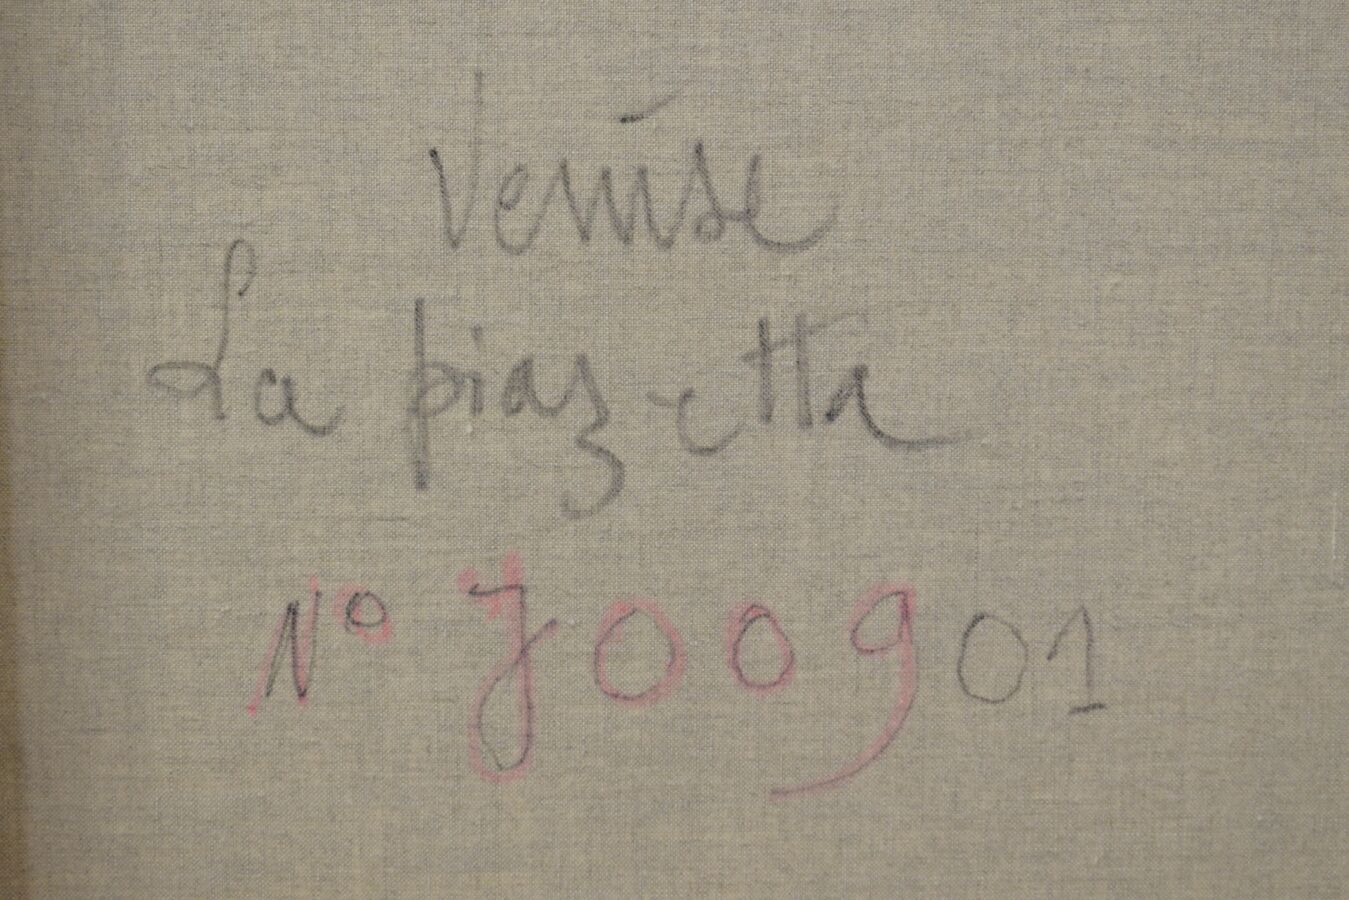 Venise
La piazetta
N° J00901